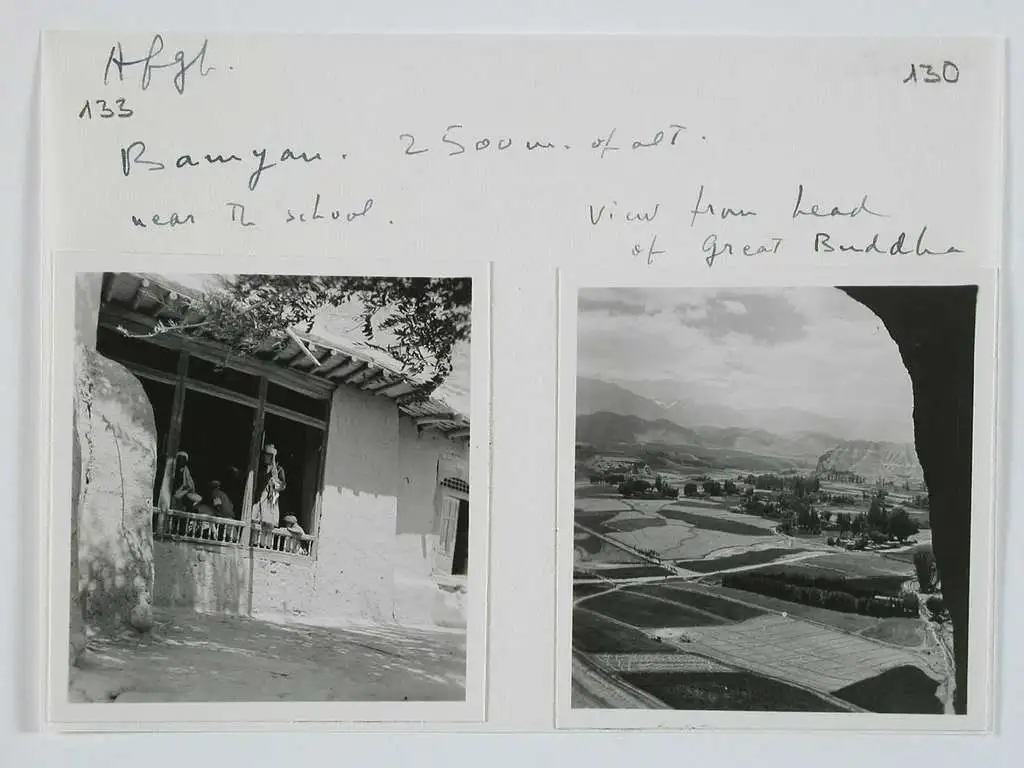 Afgh.
130
133
Bamyan. 2500 m. of alt.
near the school.
View from head
of Great Buddha